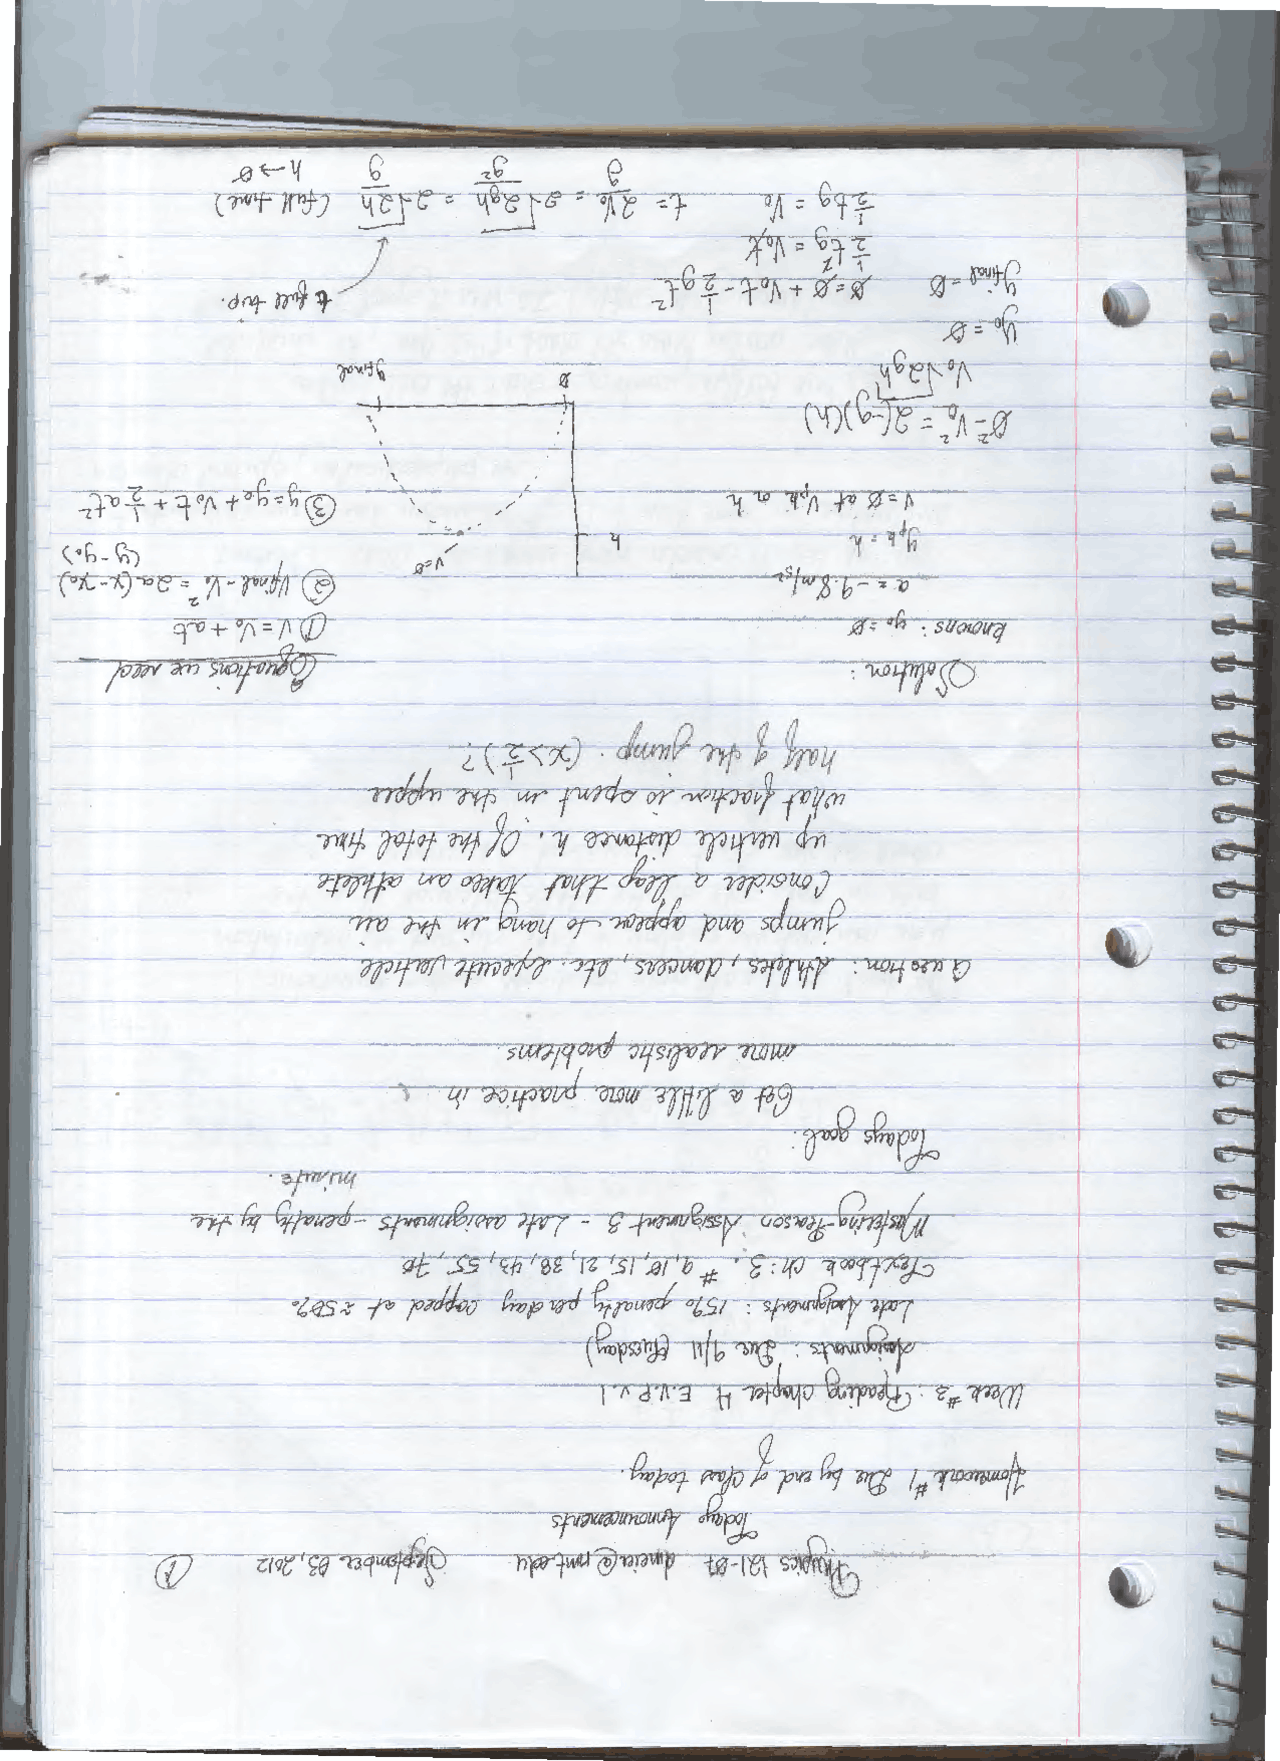 Physics 121-07 dineica@nmt.edu September 03, 2012 ①
Todays Announcements
Homework #1 Due by end of class today.
Week #3: Reading chapter 4 E.V.P.V.1
Assignments: Due 9/11 (Tuesday)
Late Assignments: 15% penalty per day capped at ≈50%
Textbook ch: 3. # 9, 10, 15, 21, 38, 43, 55, 70
Mastering-Pearson Assignment 3 - Late assignments - penalty by the
minute.
Todays goal:
Get a little more practice in
more realistic problems.
Question: Athletes, dancers, etc. execute verticle
jumps and appear to hang in the air
Consider a leap that takes an athlete
up verticle distance h. Of the total time
what fraction is spent in the upper
half of the jump. (x > 1/2)?
Solution: Equations we need
knowns: y₀ = Ø ① V = V₀ + at
a = -9.8 m/s² ② Vfinal - V₀² = 2a(x - x₀)
(y - y₀)
ypk = h h V=Ø
V = Ø at Vpk or h ③ y = y₀ + V₀t + 1/2 at²
Ø² - V₀² = 2(-g)(h)
V₀ √2gh Ø yfinal
y₀ = Ø
yfinal = Ø Ø = Ø + V₀t - 1/2 gt² t full trip.
1/2 t²g = V₀t
1/2 tg = V₀ t = 2V₀/g = 2√(2gh/g²) = 2√(2h/g) (full time)
h → Ø